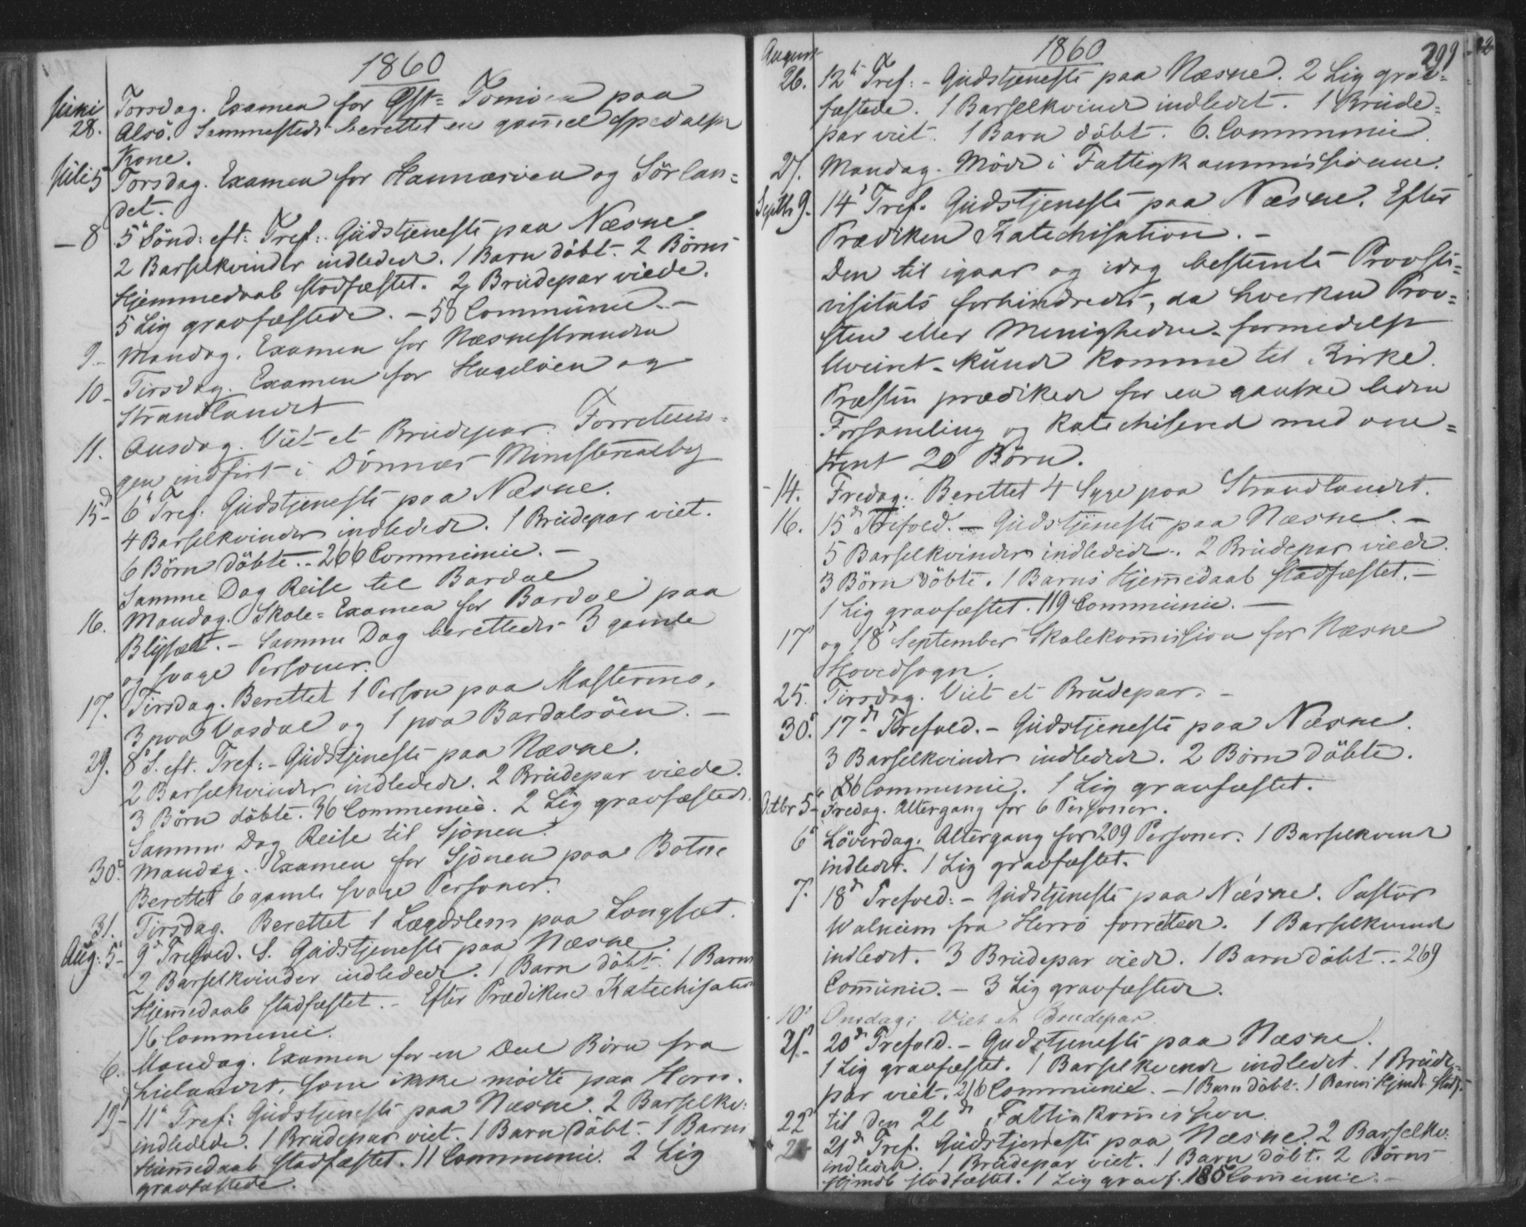 1860
Juni 28. Torsdag. Examen for Tomøen paa
Alsö. Sammesteds berettet en gammel spedalsk
Kone.
Juli 5 Torsdag. Examen for Hannæsøen og Sörlan=
det.
— 8 5te Sönd: eft: Tref: Gudstjeneste paa Næsne
2 Barselkvinder indledede. 1 Barn döbt. 2 Börns
Hjemmedaab stadfæstet. 2 Brudepar viede.
5 Lig gravfæstede. — 58 Communic. —
9. Mandag. Examen for Næsnestranden
10. Tirsdag. Examen for Hugeløen og
Strandlandet
11. Onsdag. Viet et Brudepar. Forretnin=
gen indført i Dönnæs Ministerialbog
15d 6te Tref. Gudstjeneste paa Næsne.
4 Barselkvinder indledede. 1 Brudepar viet.
6 Börn döbte. - 266 Communic. —
Samme Dag Reise til Bardal
16. Mandag. Skole=Examen for Bardal paa
. — Samme Dag berettedes 3 gamle
og svage Personer.
17. Tirsdag. Berettet 1 Person paa
3 paa og 1 paa Bardalsöen. —
29. 8d S. eft. Tref: - Gudstjeneste paa Næsne.
2 Barselkvinder indledede. 2 Brudepar viede.
3 Börn döbte. 36 Communic. 2 Lig gravfæstede.
Samme Dag Reise til Sjönen.
30d Mandag. Examen for Sjönen paa Botne
Berettet 6 gamle svage Personer.
31. Tirsdag. Berettet 1 Lægdslem paa Langsæt.
Aug: 5. 9d Trefold. S. Gudstjeneste paa Næsne.
2 Barselkvinder indledede. 1 Barn döbt. 1 Barns
Hjemmedaab stadfæstet. - Efter Prædiken Katechisation
16 Communic.
6. Mandag. Examen for en Deel Börn fra
, som ikke mödte paa .
19d 11te Tref: Gudstjeneste paa Næsne. 2 Barselkv:
indledede. 1 Brudepar viet. 1 Barn döbt. 1 Barns
Hjemmedaab stadfæstet. 11 Communic. 2 Lig
gravfæstede.
1860
299
August 26. 12te Tref: - Gudstjeneste paa Næsne. 2 Lig grav=
fæstede. 1 Barselkvinde indledet. 1 Brude=
par viet. 1 Barn döbt. 6. Communic.
27. Mandag. Möde i Fattigkommissionen.
Septbr 9. 14d Tref. Gudstjeneste paa Næsne. Efter
Prædiken Katechisation. —
Den til igaar og idag bestemte Provsti=
visitats forhindredes, da hverken Prov=
sten eller Menigheden - formedelst
Uveiret - kunde komme til Kirke.
Præsten prædikede for en ganske liden
Forsamling og katechiserede med om=
trent 20 Börn.
— 14. Fredag. Berettet 4 Syge paa Strandlandet.
16. 15de Trefold. — Gudstjeneste paa Næsne. —
5 Barselkvinder indledede. 2 Brudepar viede.
3 Börn döbte. 1 Barns Hjemmedaab stadfæstet. —
1 Lig gravfæstet. 119 Communic. —
17d og 18d September Skolekommission for Næsne
Hovedsogn.
25. Tirsdag. Viet et Brudepar. —
30d 17de Trefold. — Gudstjeneste paa Næsne.
3 Barselkvinder indledede. 2 Börn döbte.
86 Communic. 1 Lig gravfæstet.
Octbr 5. Fredag. Altergang for 6 Personer.
6d Löverdag. Altergang for 209 Personer. 1 Barselkvinde
indledet. 1 Lig gravfæstet.
7. 18de Trefold: - Gudstjeneste paa Næsne. Pastor
Walnum fra Herrö forretted. 1 Barselkvinde
indledet. 3 Brudepar viede. 1 Barn döbt. - 269
Communic. — 3 Lig gravfæstede.
10d Onsdag: Viet et Brudepar
21d 20de Trefold. — Gudstjeneste paa Næsne.
1 Lig gravfæstet. 1 Barselkvinde indledet. 1 Brude=
par viet. 216 Communic. — 1 Barn döbt. 1 Barns Hjmdb stadf.
22d til Den Fattigkommission
28. 21de Tref. Gudstjeneste paa Næsne. 2 Barselkv.
indledede. 1 Brudepar viet. 1 Barn döbt. 2 Börns
Hjmdb stadfæstet. 1 Lig gravf. 185 Communic. —